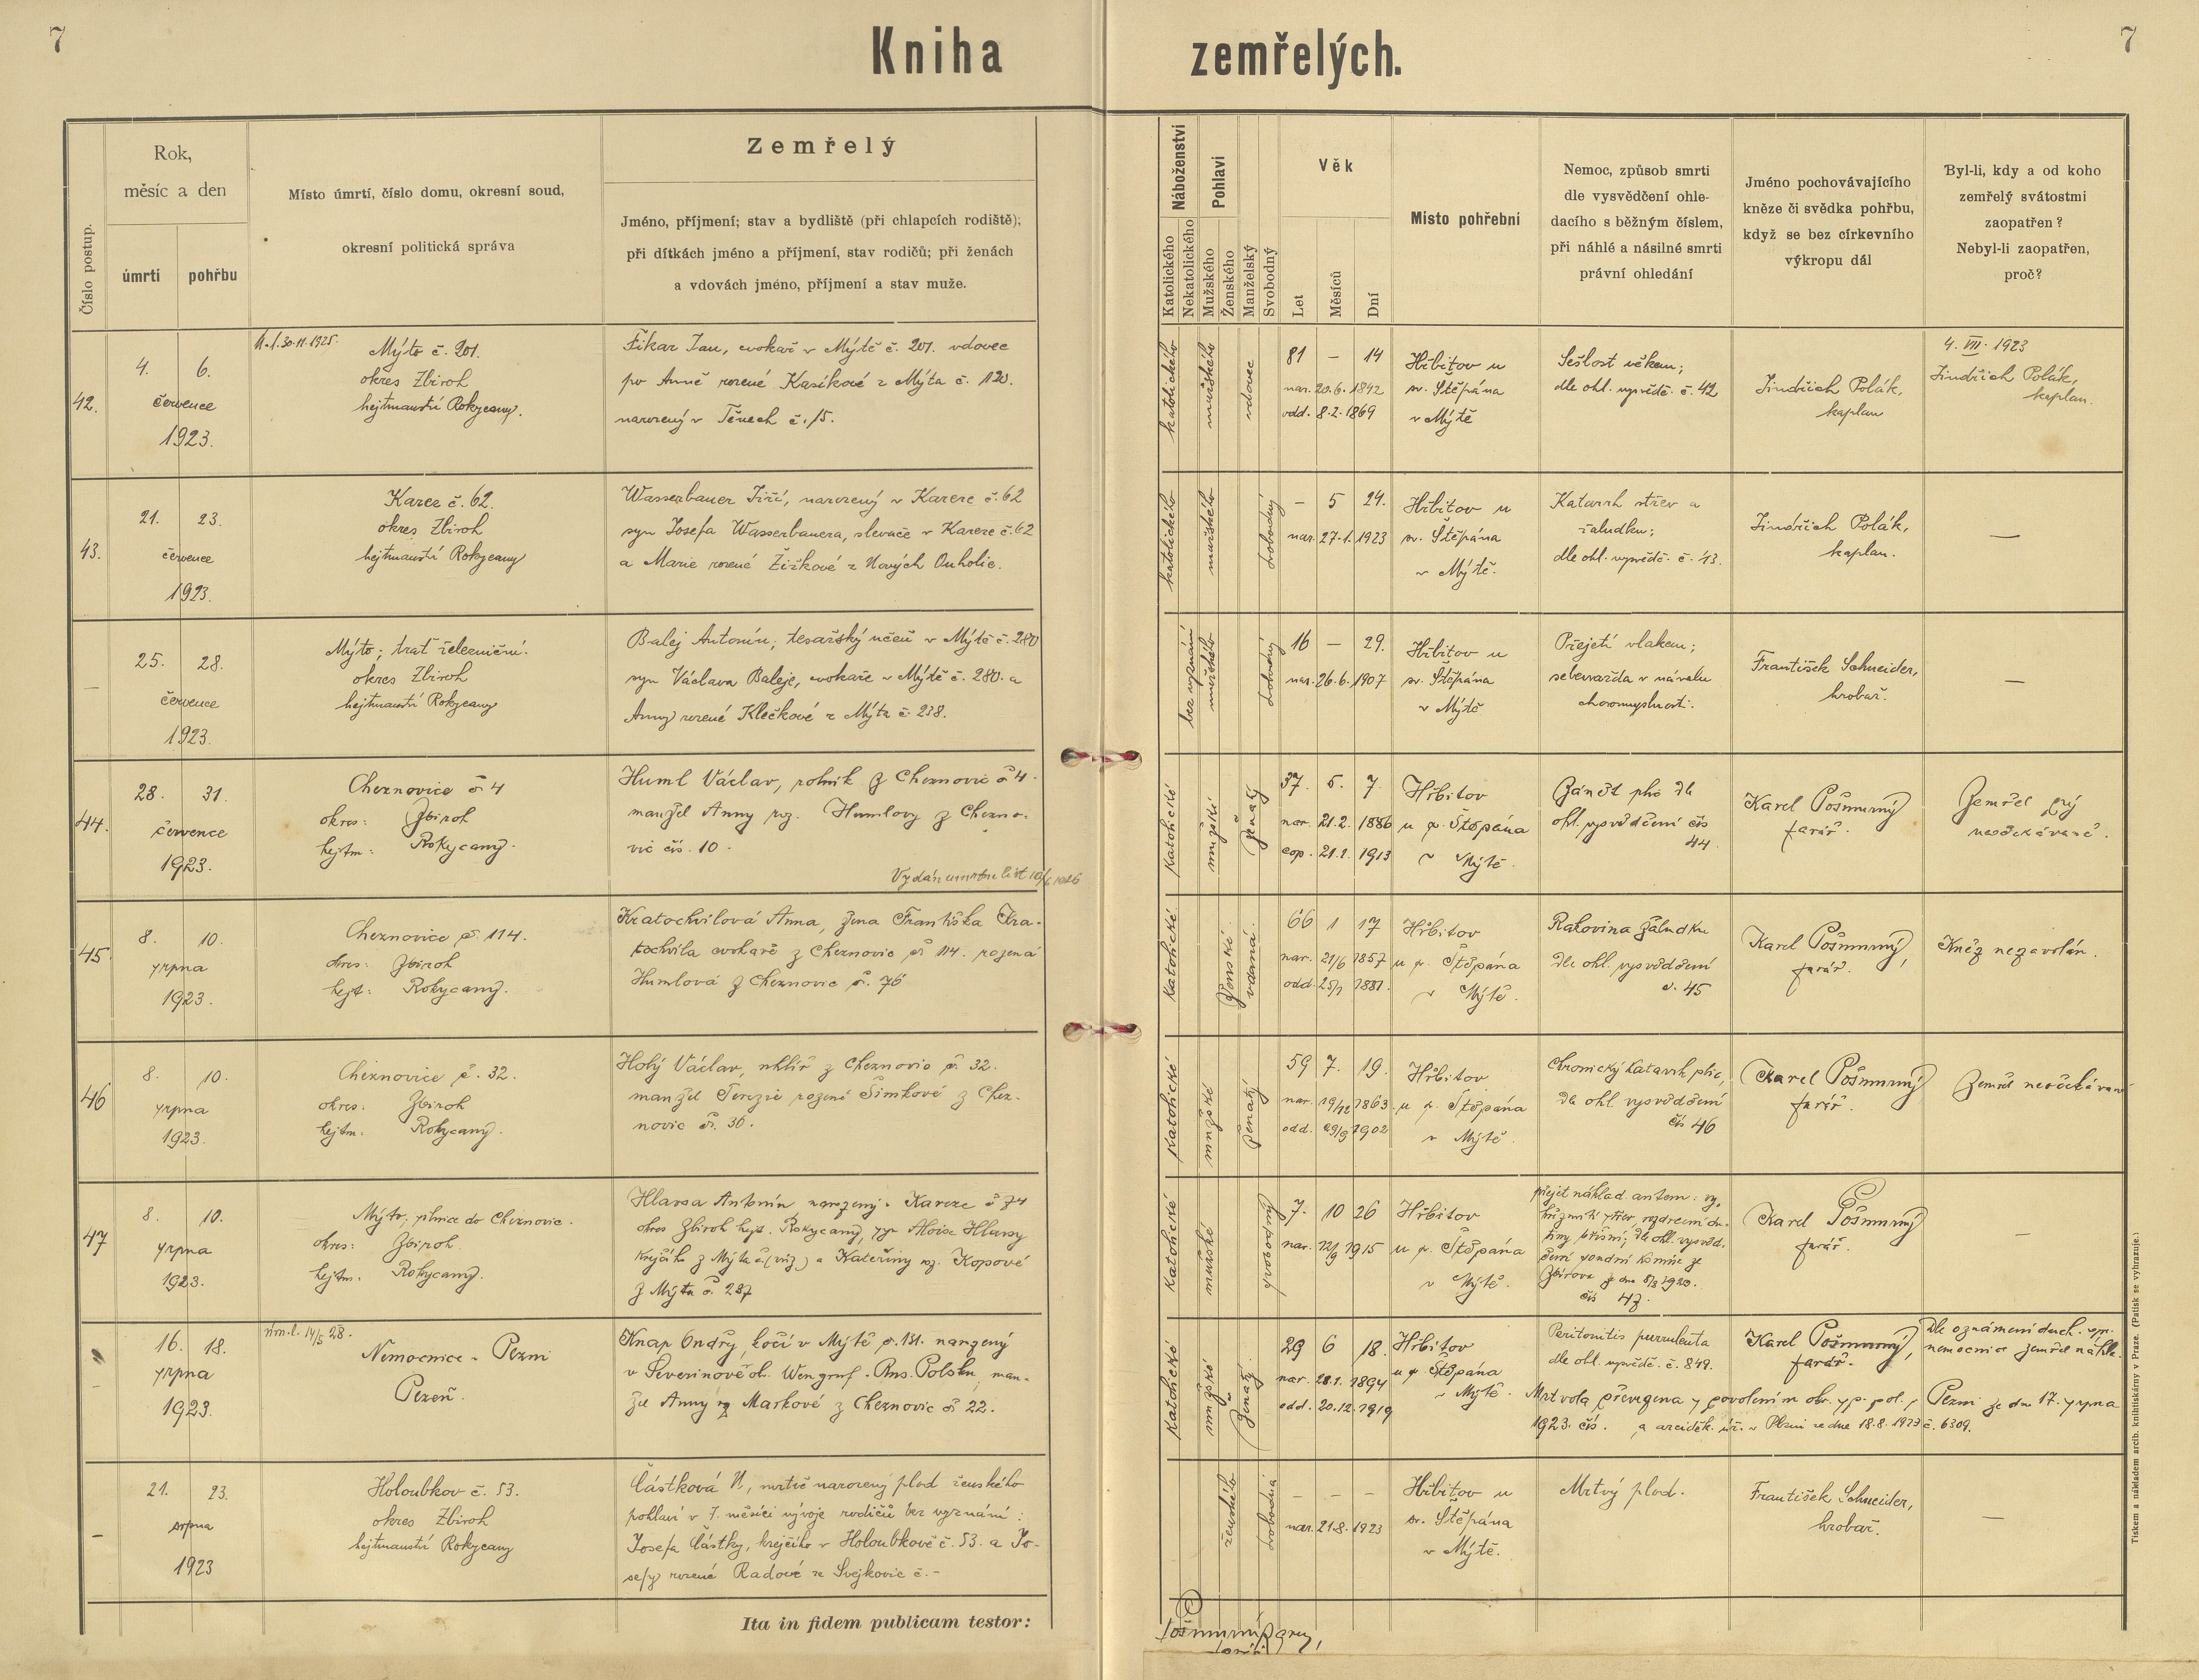 7
Kniha zemřelých.
7
Číslo postup.
Rok,
měsíc a den
úmrtí
pohřbu
Místo úmrtí, číslo domu, okresní soud,
okresní politická správa
Zemřelý
Jméno, příjmení; stav a bydliště (při chlapcích rodiště);
při dítkách jméno a příjmení, stav rodičů; při ženách
a vdovách jméno, příjmení a stav muže.
Náboženství
Katolického
Nekatolického
Pohlaví
Mužského
Ženského
Manželský
Svobodný
Věk
Let
Měsíců
Dní
Místo pohřební
Nemoc, způsob smrti
dle vysvědčení ohle-
dacího s běžným číslem,
při náhlé a násilné smrti
právní ohledání
Jméno pochovávajícího
kněze či svědka pohřbu,
když se bez církevního
výkropu dál
Byl-li, kdy a od koho
zemřelý svátostmi
zaopatřen?
Nebyl-li zaopatřen,
proč?
42.
4. 6.
července
1923.
30.11.1925.
Mýto č. 201.
okres Zbiroh
hejtmanství Rokycany.
Fikar Jan, cvokař v Mýtě č. 201. vdovec
po Anně rozené Kasíkové z Mýta č. 120.
narozený v Těnech č. 15.
katolického
mužského
vdovec
81 – 14
nar. 20.6.1842
odd. 8.2.1869
Hřbitov u
sv. Štěpána
v Mýtě
Sešlost věkem;
dle ohl. vysvědč. č. 42
Jindřich Polák,
kaplan
4. VII. 1923
Jindřich Polák,
kaplan.
43.
21. 23.
července
1923.
Karez č. 62.
okres Zbiroh
hejtmanství Rokycany
Wasserbauer Jiří, narozený v Kareze č. 62
syn Josefa Wasserbauera, slevače v Kareze č. 62
a Marie rozené Žižkové z Nových Ouholic.
katolického
mužského
svobodný
– 5 24.
nar. 27.1.1923
Hřbitov u
sv. Štěpána
v Mýtě.
Katarrh střev a
žaludku;
dle ohl. vysvědč. č. 43.
Jindřich Polák,
kaplan.
—
–
25. 28.
července
1923.
Mýto; trať železniční.
okres Zbiroh
hejtmanství Rokycany
Balej Antonín; tesařský učeň v Mýtě č. 280
syn Václava Baleje, cvokaře v Mýtě č. 280. a
Anny rozené Klečkové z Mýta č. 238.
bez vyznání
mužského
svobodný
16 – 29.
nar. 26.6.1907
Hřbitov u
sv. Štěpána
v Mýtě
Přejetí vlakem;
sebevražda v návalu
choromyslnosti.
František Schneider,
hrobař.
—
44.
28. 31.
července
1923.
Cheznovice č 4
okres: Zbiroh
hejtm: Rokycany.
Huml Václav, rolník z Cheznovic č 4.
manžel Anny roz. Humlovy z Chezno-
vic čís. 10.
Vydán úmrtní list
katolické
mužské
ženatý
37. 5. 7.
nar. 21.2. 1886
cop. 21.1. 1913
Hřbitov
u sv. Štěpána
v Mýtě.
Zánět plic dle
ohl. vysvědčení čís
44.
Karel Pošmurný
farář.
Zemřel prý
neočekávaně.
45.
8. 10.
srpna
1923.
Cheznovice č. 114.
okres: Zbiroh
hejt: Rokycany.
Kratochvílová Anna, žena Františka Kra-
tochvíla cvokaře z Cheznovic č 114. rozená
Humlová z Cheznovic č. 76
katolické
ženské.
vdaná.
66 1 17
nar. 21/6 1857
odd. 1881.
Hřbitov
u sv. Štěpána
v Mýtě.
Rakovina žaludku
dle ohl. vysvědčení
č. 45
Karel Pošmurný,
farář.
Kněz nezavolán.
46
8. 10.
srpna
1923.
Cheznovice č. 32.
okres: Zbiroh
hejtm. Rokycany.
Holý Václav, uhlíř z Cheznovic č. 32.
manžel Terezie rozené Šimkové z Chez-
novic č. 36.
katolické
mužské
ženatý
59 7. 19.
nar. 19/12 1863.
odd. 29/9 1902
Hřbitov
u sv. Štěpána
v Mýtě.
Chronický katarrh plic,
dle ohl. vysvědčení
čís 46
Karel Pošmurný
farář.
Zemřel neočekávaně
47
8. 10.
srpna
1923.
Mýto, silnice do Cheznovic.
okres: Zbiroh.
hejtm. Rokycany.
Hlavsa Antonín narozený v Kareze č 74
okres Zbiroh hejt. Rokycany, syn Aloise Hlavsy
krejčího z Mýta č. a Kateřiny roz. Kopové
z Mýta č. 287
katolické
mužské
svobodný
7. 10 26
nar. 12/9 1915
Hřbitov
u sv. Štěpána
v Mýtě.
přejet náklad. autem:
dle ohl. vysvěd-
čení soudní komise ze
Zbirova
čís 47.
Karel Pošmurný
farář.
–
–
16. 18.
srpna
1923.
14/5 28.
Nemocnice v Plzni
Plzeň.
Knap Ondřej, kočí v Mýtě č. 181. narozený
v Severinově ok. Wengruf. Rus. Polsku, man-
žel Anny roz Markové z Cheznovic č 22.
katolické
mužské
ženatý.
29 6 18.
nar. 28.1. 1894
odd. 20.12.1919
Hřbitov
u sv Štěpána
v Mýtě.
Peritonitis purrulenta
dle ohl. vysvědč. č. 849.
Karel Pošmurný,
farář.
Dle oznámení duch. spr.
nemocnice zemřel náhle.
Mrtvola převezena s povolením okr. sp. pol. v Plzni ze dne 17. srpna
1923. čís. a arciděk. úř. v Plzni ze dne 18.8.1923 č. 6309.
–
21. 23.
srpna
1923
Holoubkov č. 53.
okres Zbiroh
hejtmanství Rokycany
Částková N., mrtvě narozený plod ženského
pohlaví v 7. měsíci vývoje rodičů bez vyznání:
Josefa Částky, krejčího v Holoubkově č. 53. a Jo-
sefy rozené Radové ze Svejkovic č. –
ženského
svobodná
– – –
nar. 21.8.1923
Hřbitov u
sv. Štěpána
v Mýtě.
Mrtvý plod.
František Schneider,
hrobař.
—
Ita in fidem publicam testor:
Tiskem a nákladem arcib. knihtiskárny v Praze. (Patisk se vyhrazuje.)